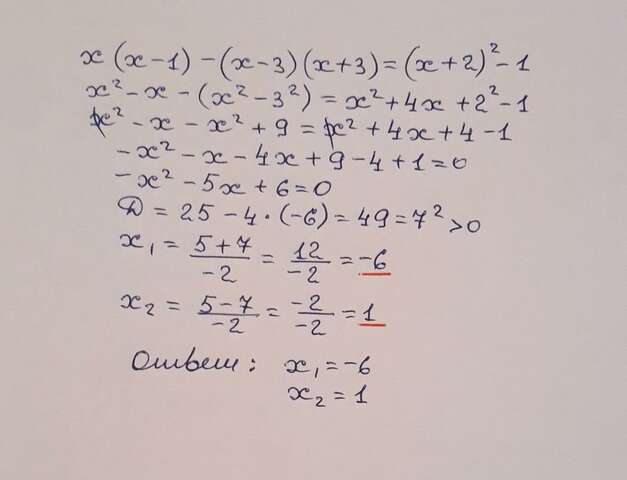 x(x-1)-(x-3)(x+3)=(x+2)²-1
x²-x-(x²-3²)=x²+4x+2²-1
x²-x-x²+9=x²+4x+4-1
-x²-x-4x+9-4+1=0
-x²-5x+6=0
D=25-4·(-6)=49=7²>0
x₁=(5+7)/(-2)=12/(-2)=-6
x₂=(5-7)/(-2)=(-2)/(-2)=1
Ответ: x₁=-6
x₂=1